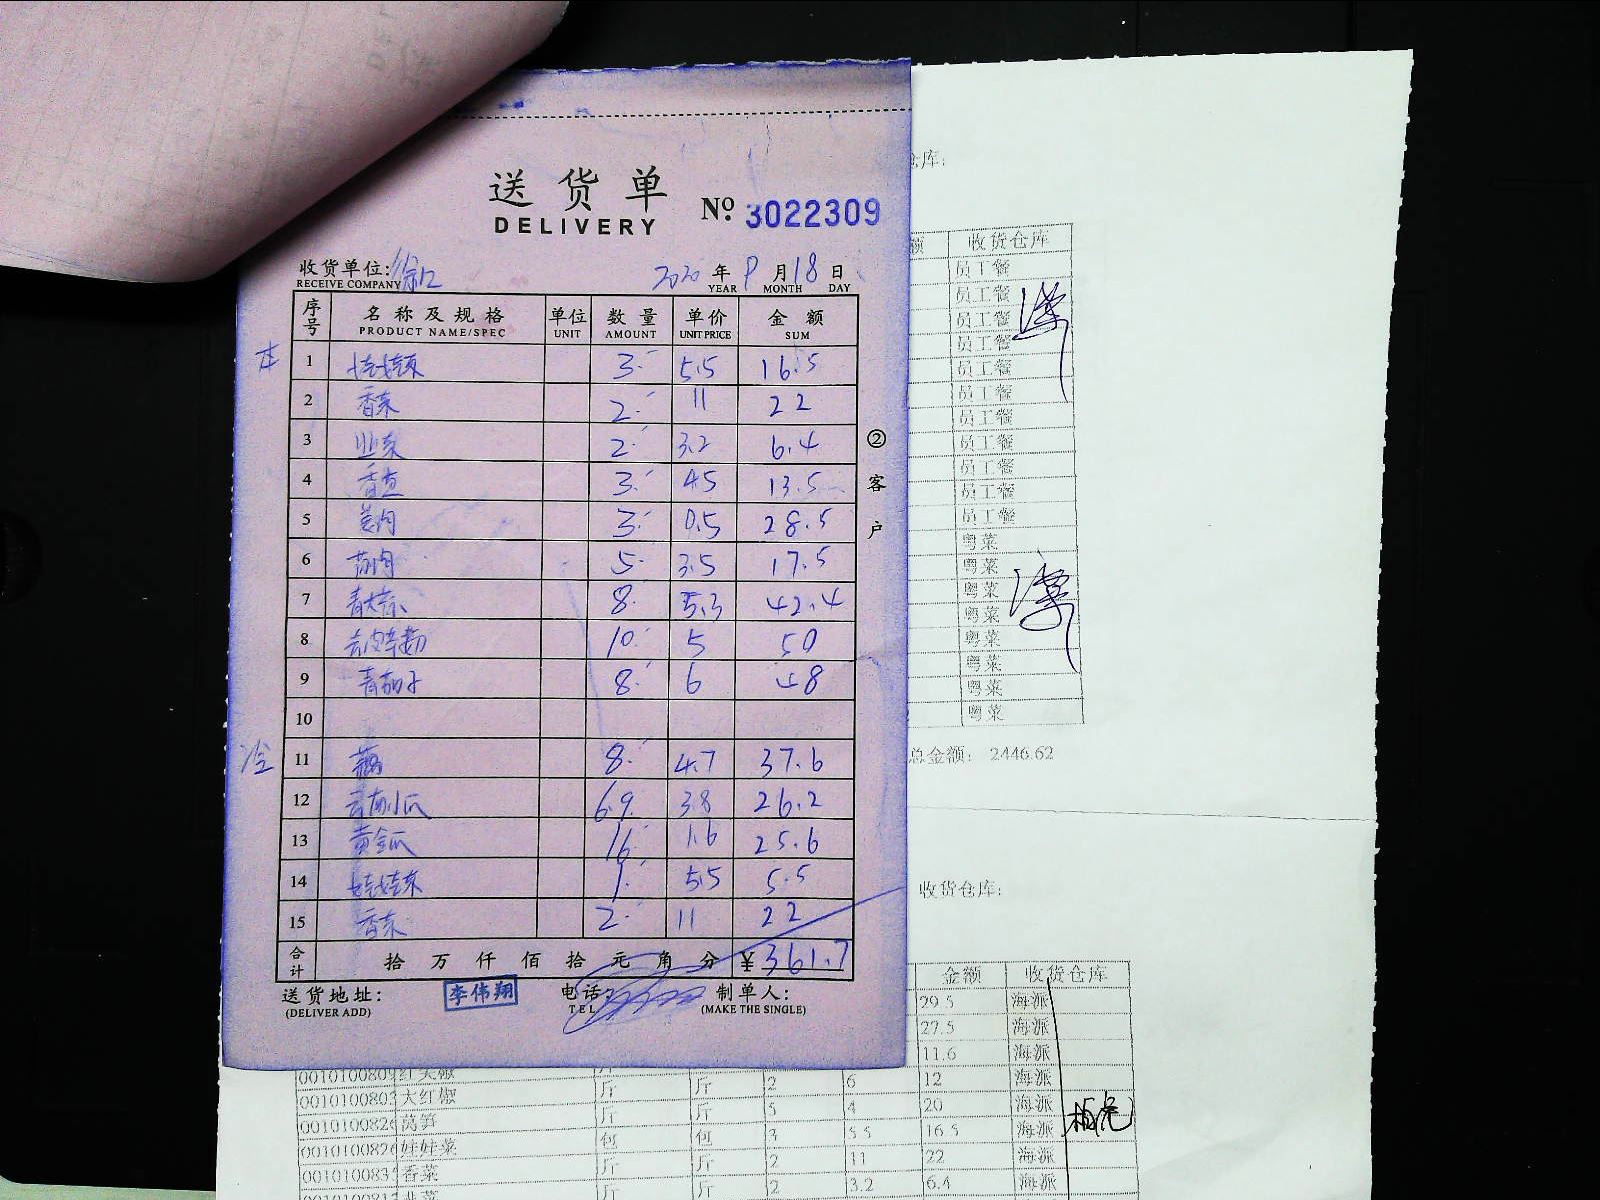 送货单
DELIVERY
№ 3022309
收货单位: 徐汇 2020 年 9 月 18 日
RECEIVE COMPANY YEAR MONTH DAY
序号 名称及规格 单位 数量 单价 金额
PRODUCT NAME/SPEC UNIT AMOUNT UNIT PRICE SUM
1 娃娃菜 3 5.5 16.5
2 香菜 2 11 22
3 韭菜 2 3.2 6.4
4 3 4.5 13.5
5 姜肉 3 9.5 28.5
6 5 3.5 17.5
7 8 5.3 42.4
8 10 5 50
9 青茄子 8 6 48
10
冷
11 藕 8 4.7 37.6
12 云南小瓜 6.9 3.8 26.2
13 黄金瓜 16 1.6 25.6
14 娃娃菜 1 5.5 5.5
15 香菜 2 11 22
合计 拾 万 仟 佰 拾 元 角 分 ¥ 361.7
送货地址: 李伟翔 电话: 制单人:
(DELIVER ADD) TEL (MAKE THE SINGLE)
②客户
仓库:
额 收货仓库
员工餐
员工餐
员工餐
员工餐
员工餐
员工餐
员工餐
员工餐
员工餐
员工餐
员工餐
粤菜
粤菜
粤菜
粤菜
粤菜
粤菜
粤菜
粤菜
总金额: 2446.62
收货仓库:
金额 收货仓库
29.5 海派
27.5 海派
11.6 海派
斤 斤 2 6 12 海派
大红椒 斤 斤 5 4 20 海派
莴笋 包 包 3 5.5 16.5 海派
娃娃菜 斤 斤 2 11 22 海派
香菜 斤 斤 2 3.2 6.4 海派